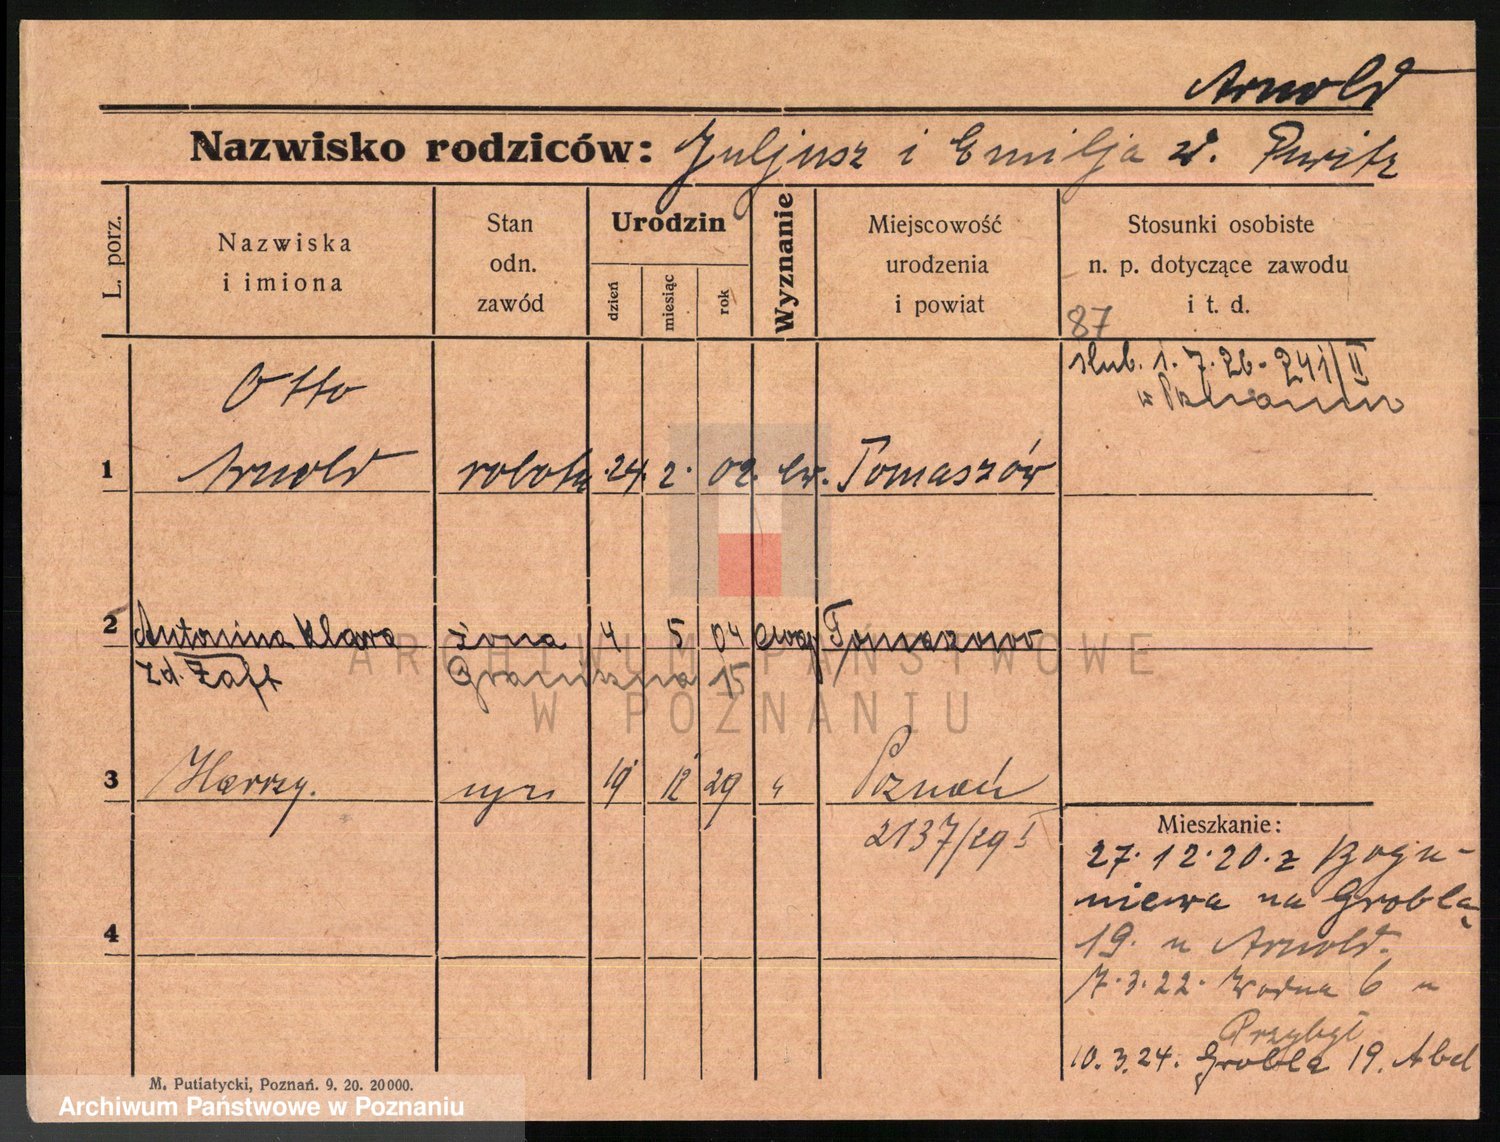 Arnold
Nazwisko rodziców: Juljusz i Emilja z d. Puritz
L. porz.
Nazwiska
i imiona
Stan
odn.
zawód
Urodzin
dzień
miesiąc
rok
Wyznanie
Miejscowość
urodzenia
i powiat
Stosunki osobiste
n. p. dotyczące zawodu
i t. d.
87
ślub. 1. 7. 26 - 241/II
w Poznaniu
Otto
1 Arnold robotn. 24. 2. 02. ew. Tomaszów
2 Antonina Klara żona 4 5 04 ewag Tomaszowo
z d. Zaft Graniczna 15
3 Harry. syn 19 12 29 " Poznań
2137/29 I
4
Mieszkanie:
27. 12. 20. z Bogu-
niewa na Grobla
19. u Arnold.
7. 3. 22. Wodna 6 u
Przybył
10. 3. 24. Grobla 19. Abel
M. Putiatycki, Poznań. 9. 20. 20000.
ARCHIWUM PAŃSTWOWE
W POZNANIU
Archiwum Państwowe w Poznaniu